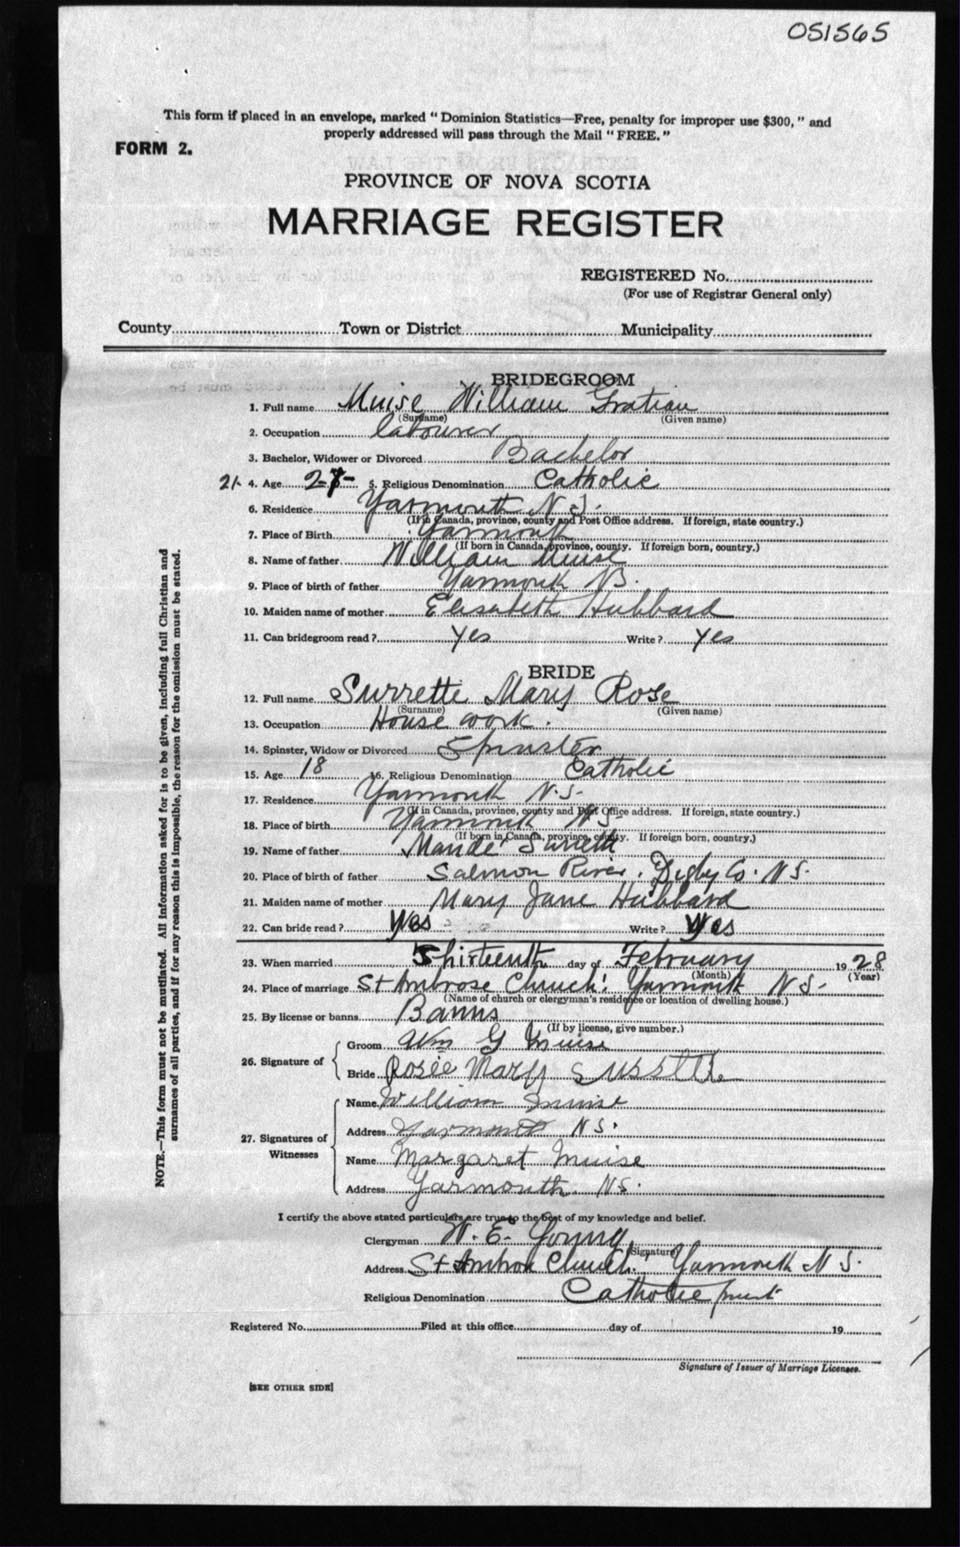 051565
This form if placed in an envelope, marked "Dominion Statistics—Free, penalty for improper use $300," and
properly addressed will pass through the Mail "FREE."
FORM 2.
PROVINCE OF NOVA SCOTIA
MARRIAGE REGISTER
REGISTERED No.
(For use of Registrar General only)
County Town or District Municipality
BRIDEGROOM
1. Full name Muise William Gratian
(Surname) (Given name)
2. Occupation labourer
3. Bachelor, Widower or Divorced Bachelor
21 4. Age 5. Religious Denomination Catholic
6. Residence Yarmouth N.S.
(If in Canada, province, county and Post Office address. If foreign, state country.)
7. Place of Birth Yarmouth
(If born in Canada, province, county. If foreign born, country.)
8. Name of father William Muise
9. Place of birth of father Yarmouth
10. Maiden name of mother Elisabeth Hubbard
11. Can bridegroom read? yes Write? yes
BRIDE
12. Full name Surrette Mary Rose
(Surname) (Given name)
13. Occupation House work.
14. Spinster, Widow or Divorced Spinster
15. Age 18 16. Religious Denomination Catholic
17. Residence Yarmouth N.S.
(If in Canada, province, county and Post Office address. If foreign, state country.)
18. Place of birth Yarmouth N.S.
(If born in Canada, province, county. If foreign born, country.)
19. Name of father Mande Surrette
20. Place of birth of father Salmon River, Digby Co. N.S.
21. Maiden name of mother Mary Jane Hubbard
22. Can bride read? Yes Write? Yes
23. When married day of February 1928
(Month) (Year)
24. Place of marriage St Ambrose Church, Yarmouth N S.
(Name of church or clergyman's residence or location of dwelling house.)
25. By license or banns Banns
(If by license, give number.)
26. Signature of
Groom Wm G Muise
Bride Rosie Mary Surrette
27. Signatures of Witnesses
Name William Muise
Address Yarmouth N.S.
Name Margaret Muise
Address Yarmouth. N.S.
I certify the above stated particulars are true to the best of my knowledge and belief.
Clergyman W. E. Young
(Signature)
Address St Ambrose Church. Yarmouth N S.
Religious Denomination Catholic priest
Registered No. Filed at this office day of 19
Signature of Issuer of Marriage Licenses.
[SEE OTHER SIDE]
NOTE.—This form must not be mutilated. All information asked for is to be given, including full Christian and
surnames of all parties, and if for any reason this is impossible, the reason for the omission must be stated.